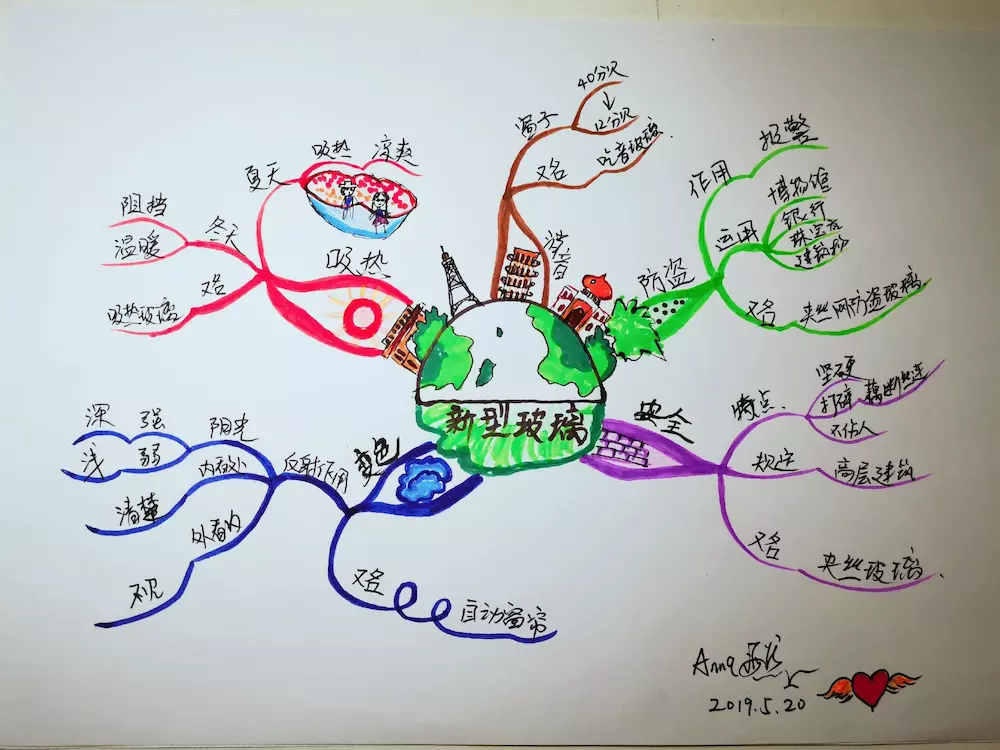 新型玻璃
防盗
作用
报警
运用
博物馆
银行
珠宝店
又名
夹丝网防盗玻璃
安全
特点
坚硬
打碎
藕断丝连
不伤人
欢迎
高层建筑
又名
夹丝玻璃
变色
反射作用
阳光
强
深
弱
浅
内看外
清楚
外看内
不见
又名
自动窗帘
吸热
夏天
吸热
凉爽
冬天
阻挡
温暖
又名
吸热玻璃
噪音
窗子
40分贝
12分贝
又名
吃音玻璃
2019.5.20